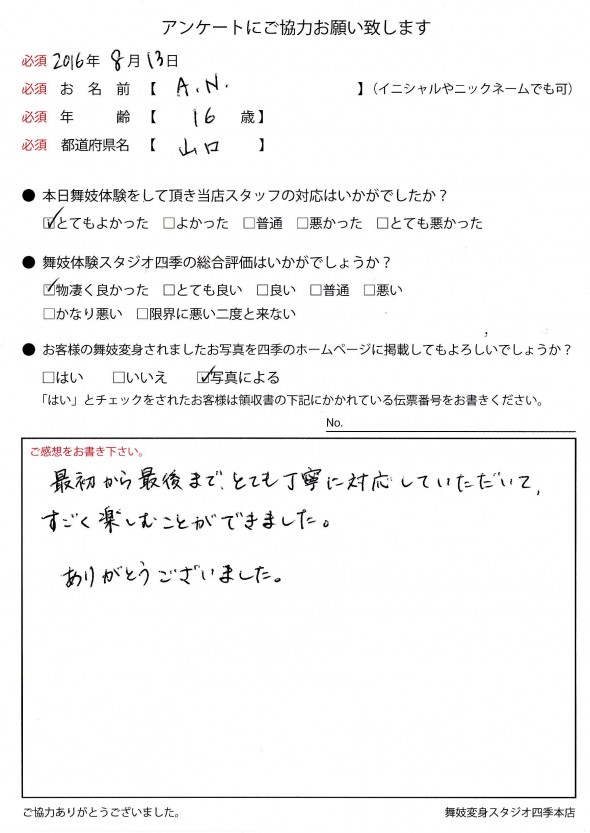 アンケートにご協力お願い致します
必須 2016年 8月 13日
必須 お名前 【 A.N. 】（イニシャルやニックネームでも可）
必須 年齢 【 16 歳】
必須 都道府県名 【 山口 】
● 本日舞妓体験をして頂き当店スタッフの対応はいかがでしたか？
☑とてもよかった □よかった □普通 □悪かった □とても悪かった
● 舞妓体験スタジオ四季の総合評価はいかがでしょうか？
☑物凄く良かった □とても良い □良い □普通 □悪い
□かなり悪い □限界に悪い二度と来ない
● お客様の舞妓変身されましたお写真を四季のホームページに掲載してもよろしいでしょうか？
□はい □いいえ ☑写真による
「はい」とチェックをされたお客様は領収書の下記にかかれている伝票番号をお書きください。
No.
ご感想をお書き下さい。
最初から最後まで、とても丁寧に対応していただいて、
すごく楽しむことができました。
ありがとうございました。
ご協力ありがとうございました。 舞妓変身スタジオ四季本店